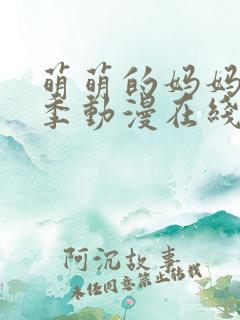 萌萌的妈妈
季動漫在綫
阿沉故事
未经同意禁止转载